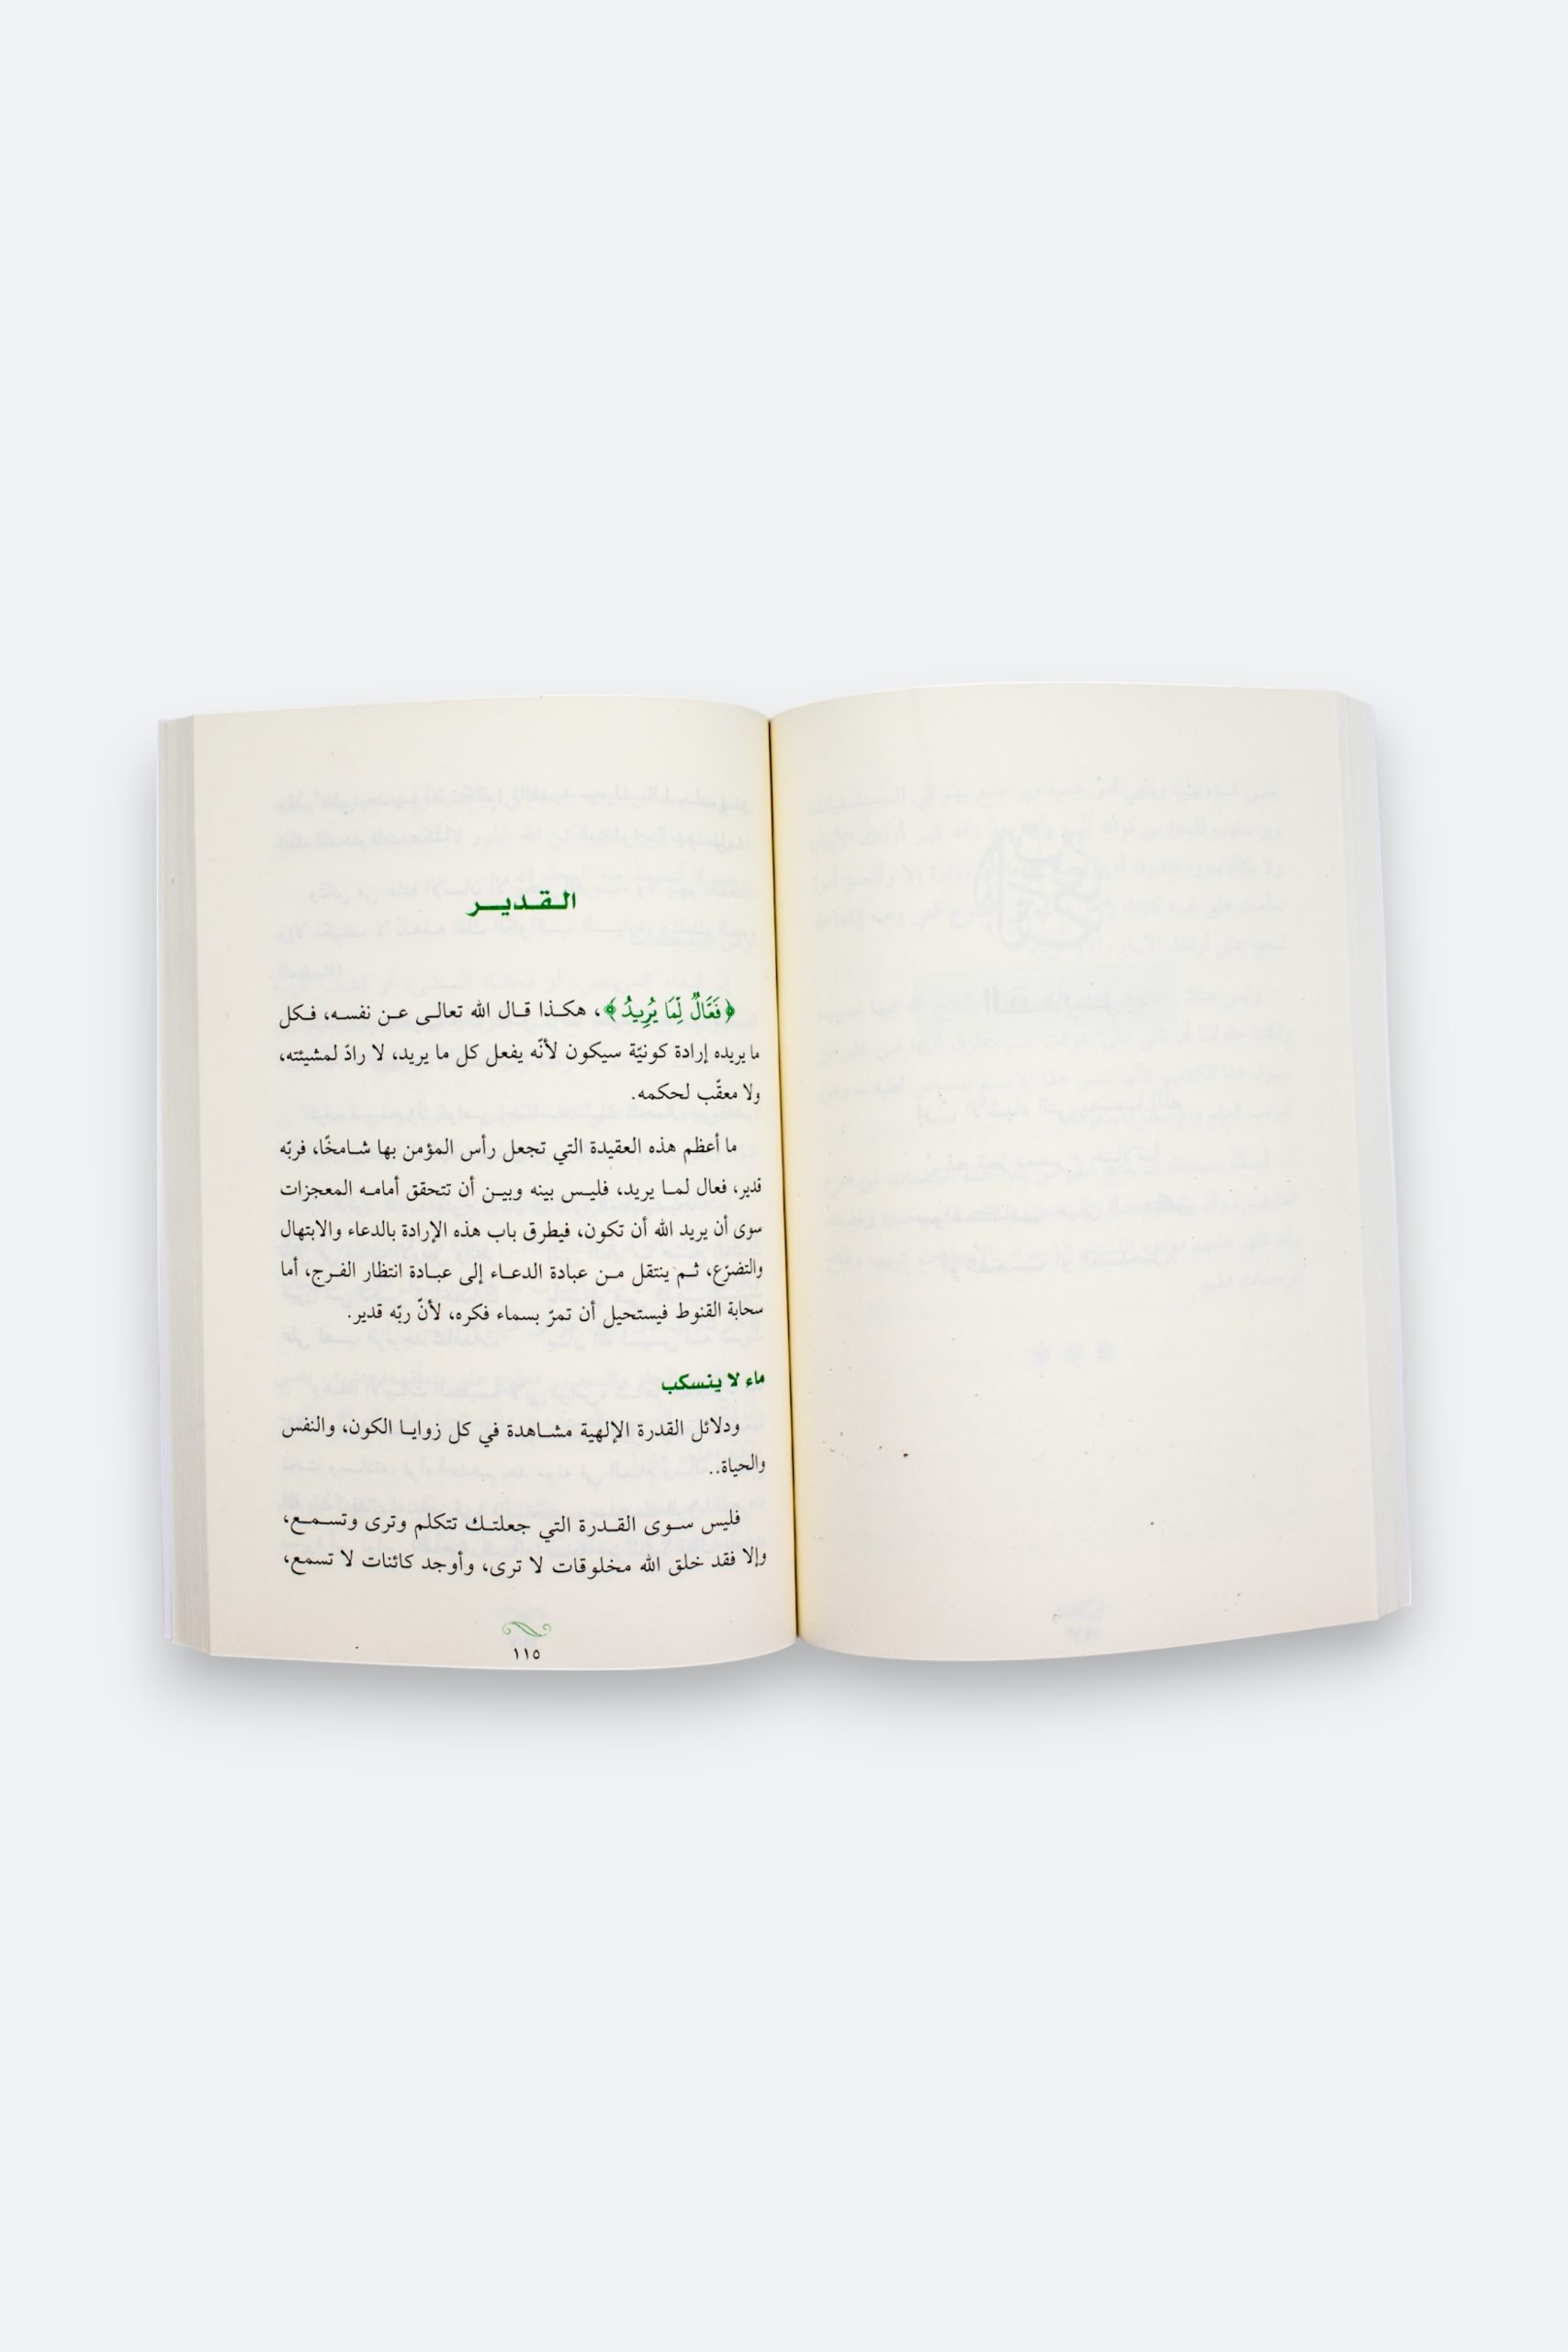 القدير
﴿فَعَّالٌ لِّمَا يُرِيدُ﴾، هكذا قال الله تعالى عن نفسه، فكل
ما يريده إرادة كونيّة سيكون لأنّه يفعل كل ما يريد، لا رادّ لمشيئته،
ولا معقّب لحكمه.
ما أعظم هذه العقيدة التي تجعل رأس المؤمن بها شامخًا، فربّه
قدير، فعال لما يريد، فليس بينه وبين أن تتحقق أمامه المعجزات
سوى أن يريد الله أن تكون، فيطرق باب هذه الإرادة بالدعاء والابتهال
والتضرّع، ثم ينتقل من عبادة الدعاء إلى عبادة انتظار الفرج، أما
سحابة القنوط فيستحيل أن تمرّ بسماء فكره، لأنّ ربّه قدير.
ماء لا ينسكب
ودلائل القدرة الإلهية مشاهدة في كل زوايا الكون، والنفس
والحياة..
فليس سوى القدرة التي جعلتك تتكلم وترى وتسمع،
وإلا فقد خلق الله مخلوقات لا ترى، وأوجد كائنات لا تسمع،
١١٥